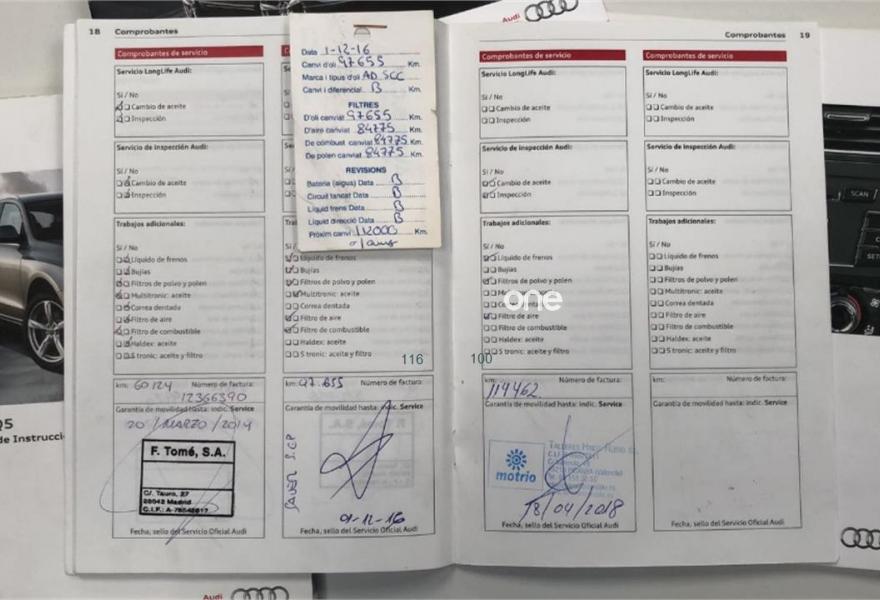 Audi
18 Comprobantes
Comprobantes de servicio
Servicio LongLife Audi:
Sí / No
Cambio de aceite
Inspección
Servicio de Inspección Audi:
Sí / No
Cambio de aceite
Inspección
Trabajos adicionales:
Sí / No
Líquido de frenos
Bujías
Filtros de polvo y polen
Multitronic: aceite
Correa dentada
Filtro de aire
Filtro de combustible
Haldex: aceite
S tronic: aceite y filtro
km: 60124 Número de factura:
12366390
Garantía de movilidad hasta: indic. Service
20 / MARZO / 2014
F. Tomé, S.A.
C/. Tauro, 27
28042 Madrid
C.I.F.: A-78548817
Fecha, sello del Servicio Oficial Audi
Data 1-12-16
Canvi d'oli 97655 Km.
Marca i tipus d'oli AD SCC
Canvi i diferencial B Km.
FILTRES
D'oli canviat 97655 Km.
D'aire canviat 84775 Km.
De combust canviat 84775 Km.
De polen canviat 84775 Km.
REVISIONS
Bateria (aigua) Data B
Circuit tancat Data B
Líquid frens Data B
Líquid direcció Data B
Pròxim canvi 112000 Km.
Líquido de frenos
Bujías
Filtros de polvo y polen
Multitronic: aceite
Correa dentada
Filtro de aire
Filtro de combustible
Haldex: aceite
S tronic: aceite y filtro
116
km: 97.655 Número de factura:
Garantía de movilidad hasta: indic. Service
01-12-16
Fecha, sello del Servicio Oficial Audi
Comprobantes 19
Comprobantes de servicio
Servicio LongLife Audi:
Sí / No
Cambio de aceite
Inspección
Servicio de Inspección Audi:
Sí / No
Cambio de aceite
Inspección
Trabajos adicionales:
Sí / No
Líquido de frenos
Bujías
Filtros de polvo y polen
one
Correa dentada
Filtro de aire
Filtro de combustible
Haldex: aceite
S tronic: aceite y filtro
100
km: Número de factura:
119462
Garantía de movilidad hasta: indic. Service
motrio
18/04/2018
Fecha, sello del Servicio Oficial Audi
Comprobantes de servicio
Servicio LongLife Audi:
Sí / No
Cambio de aceite
Inspección
Servicio de Inspección Audi:
Sí / No
Cambio de aceite
Inspección
Trabajos adicionales:
Sí / No
Líquido de frenos
Bujías
Filtros de polvo y polen
Multitronic: aceite
Correa dentada
Filtro de aire
Filtro de combustible
Haldex: aceite
S tronic: aceite y filtro
km: Número de factura:
Garantía de movilidad hasta: indic. Service
Fecha, sello del Servicio Oficial Audi
Q5
de Instrucci
SCAN
Audi